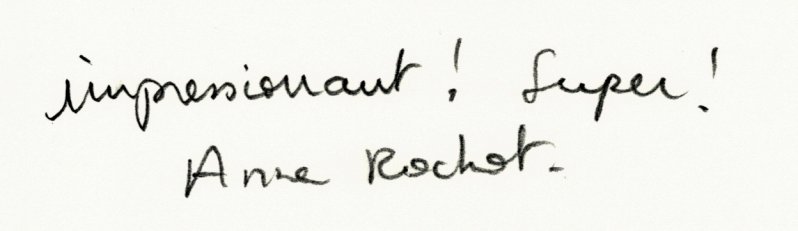 impressionnant ! Super !
Anne Rochot.